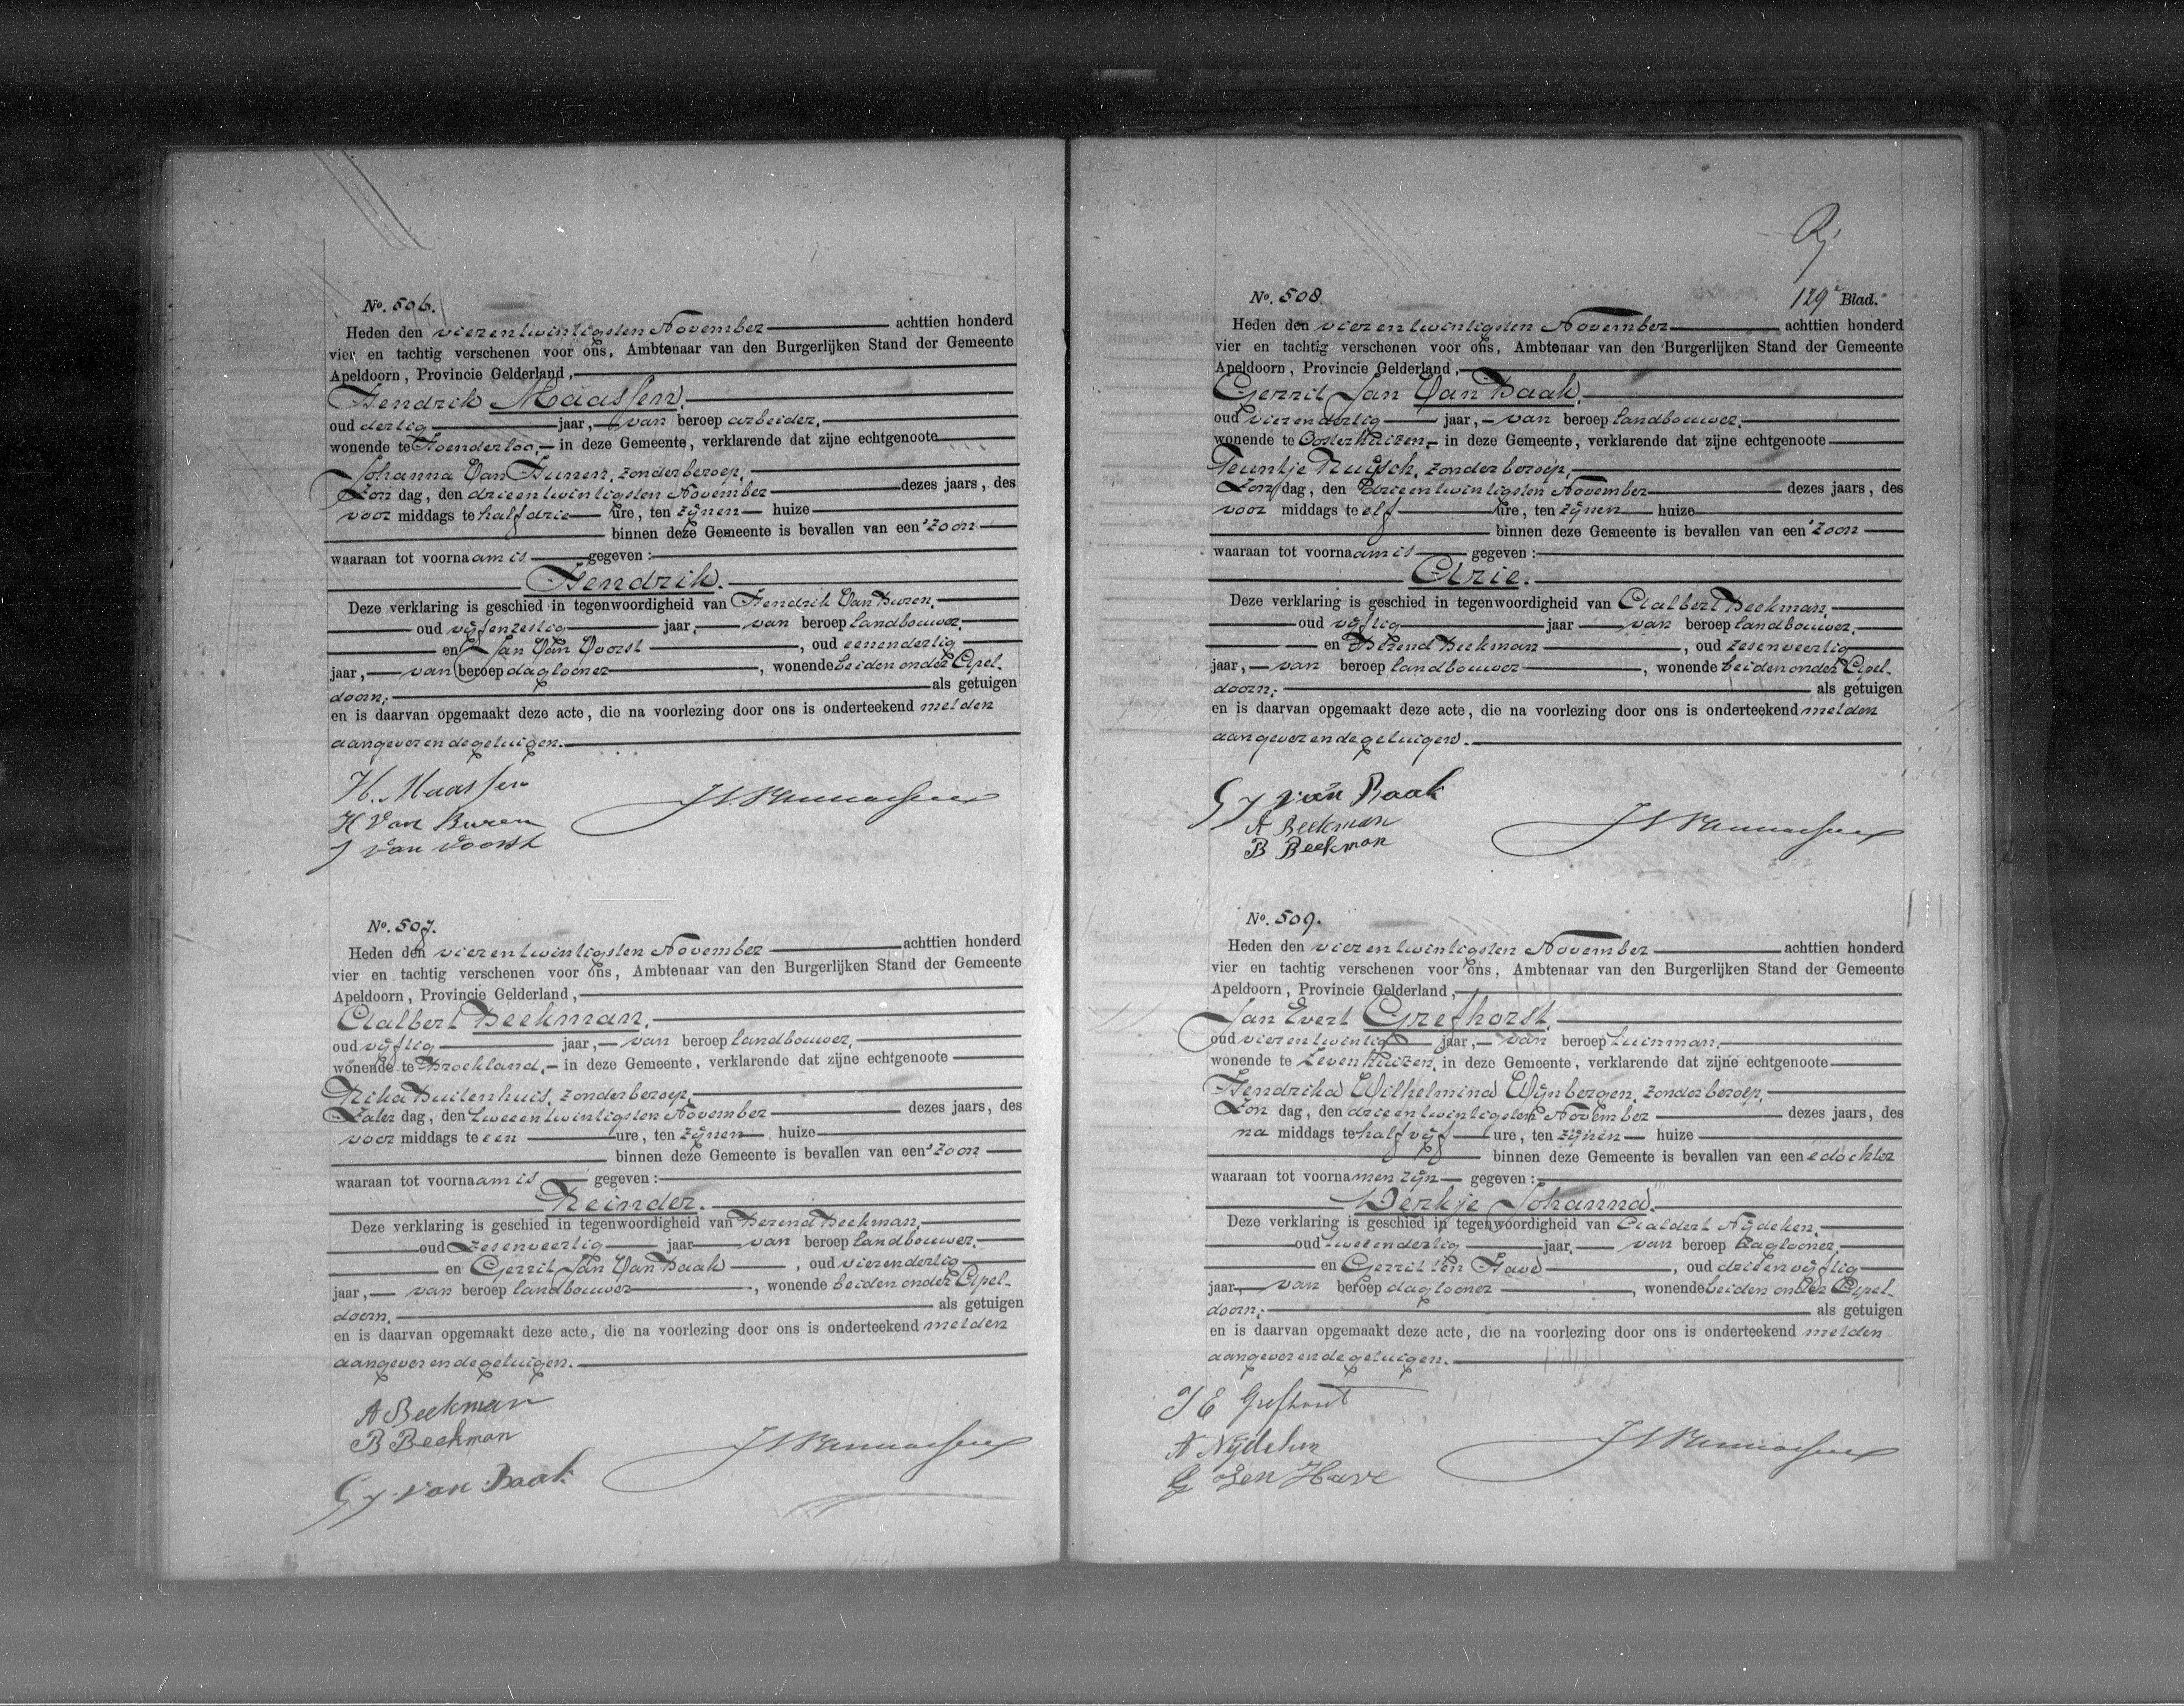 No. 506.
Heden den vierentwintigsten November achttien honderd
vier en tachtig verschenen voor ons, Ambtenaar van den Burgerlijken Stand der Gemeente
Apeldoorn, Provincie Gelderland,
Hendrik Maassen,
oud dertig jaar, van beroep arbeider,
wonende te Hoenderloo, in deze Gemeente, verklarende dat zijne echtgenoote
Johanna Van Hunen, zonder beroep,
Zondag, den drieentwintigsten November dezes jaars, des
voor middags te half drie ure, ten zijnen huize
binnen deze Gemeente is bevallen van een zoon
waaraan tot voornaam is gegeven:
Hendrik.
Deze verklaring is geschied in tegenwoordigheid van Hendrik Van Buren,
oud vijfenzestig jaar, van beroep landbouwer,
en Jan Van Voorst, oud eenendertig
jaar, van beroep daglooner, wonende beiden onder Apel-
doorn, als getuigen
en is daarvan opgemaakt deze acte, die na voorlezing door ons is onderteekend met den
aangever en de getuigen.
H. Maassen
H Van Buren
J van Voorst
No. 507.
Heden den vierentwintigsten November achttien honderd
vier en tachtig verschenen voor ons, Ambtenaar van den Burgerlijken Stand der Gemeente
Apeldoorn, Provincie Gelderland,
Aalbert Beekman,
oud vijftig jaar, van beroep landbouwer,
wonende te Broekland, in deze Gemeente, verklarende dat zijne echtgenoote
Rika Buitenhuis, zonder beroep,
Zaterdag, den tweeentwintigsten November dezes jaars, des
voor middags te een ure, ten zijnen huize
binnen deze Gemeente is bevallen van een zoon
waaraan tot voornaam is gegeven:
Reinder.
Deze verklaring is geschied in tegenwoordigheid van Berend Beekman,
oud zesenveertig jaar van beroep landbouwer,
en Gerrit Jan Van Baak, oud vierendertig
jaar, van beroep landbouwer, wonende beiden onder Apel-
doorn, als getuigen
en is daarvan opgemaakt deze acte, die na voorlezing door ons is onderteekend met den
aangever en de getuigen.
A Beekman
B Beekman
G J van Baak
No. 508.
129e Blad.
Heden den vierentwintigsten November achttien honderd
vier en tachtig verschenen voor ons, Ambtenaar van den Burgerlijken Stand der Gemeente
Apeldoorn, Provincie Gelderland,
Gerrit Jan Van Baak,
oud vierendertig jaar, van beroep landbouwer,
wonende te Oosterhuizen, in deze Gemeente, verklarende dat zijne echtgenoote
Teuntje Nuijsch, zonder beroep,
Zondag, den drieentwintigsten November dezes jaars, des
voor middags te elf ure, ten zijnen huize
binnen deze Gemeente is bevallen van een zoon
waaraan tot voornaam is gegeven:
Arie.
Deze verklaring is geschied in tegenwoordigheid van Aalbert Beekman,
oud vijftig jaar van beroep landbouwer,
en Berend Beekman, oud zesenveertig
jaar, van beroep landbouwer, wonende beiden onder Apel-
doorn, als getuigen
en is daarvan opgemaakt deze acte, die na voorlezing door ons is onderteekend met den
aangever en de getuigen.
G J van Baak
A Beekman
B Beekman
No. 509.
Heden den vierentwintigsten November achttien honderd
vier en tachtig verschenen voor ons, Ambtenaar van den Burgerlijken Stand der Gemeente
Apeldoorn, Provincie Gelderland,
Jan Evert Grefhorst,
oud vierentwintig jaar, van beroep tuinman,
wonende te Zevenhuizen, in deze Gemeente, verklarende dat zijne echtgenoote
Hendrika Wilhelmina Wijnbergen, zonder beroep,
Zondag, den drieentwintigsten November dezes jaars, des
na middags te half vijf ure, ten zijnen huize
binnen deze Gemeente is bevallen van eene dochter
waaraan tot voornamen zijn gegeven:
Derkje Johanna.
Deze verklaring is geschied in tegenwoordigheid van Aaldert Nijdeken,
oud tweeendertig jaar, van beroep daglooner
en Gerrit ten Have, oud drieenvijftig
jaar, van beroep daglooner, wonende beiden onder Apel-
doorn, als getuigen
en is daarvan opgemaakt deze acte, die na voorlezing door ons is onderteekend met den
aangever en de getuigen.
J E Grefhorst
A Nijdeken
G ten Have